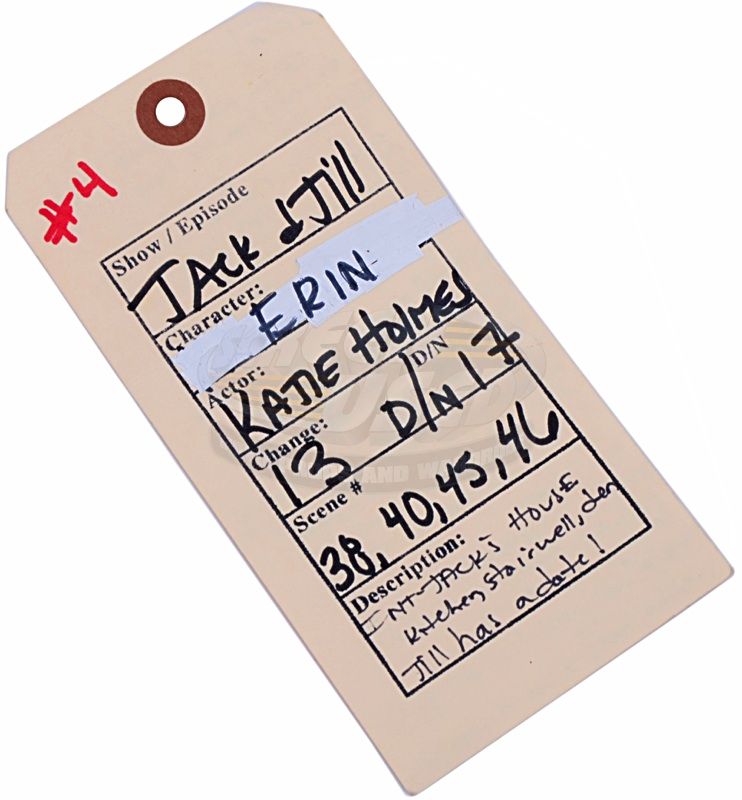 #4
Show / Episode
JACK & Jill
Character:
ERIN
Actor:
KATIE HOLMES
Change:
D/N
13 D/N 17
Scene #
38, 40, 45, 46
Description:
INT-JACK's HOUSE
Kitchen, stairwell, den
Jill has a date!